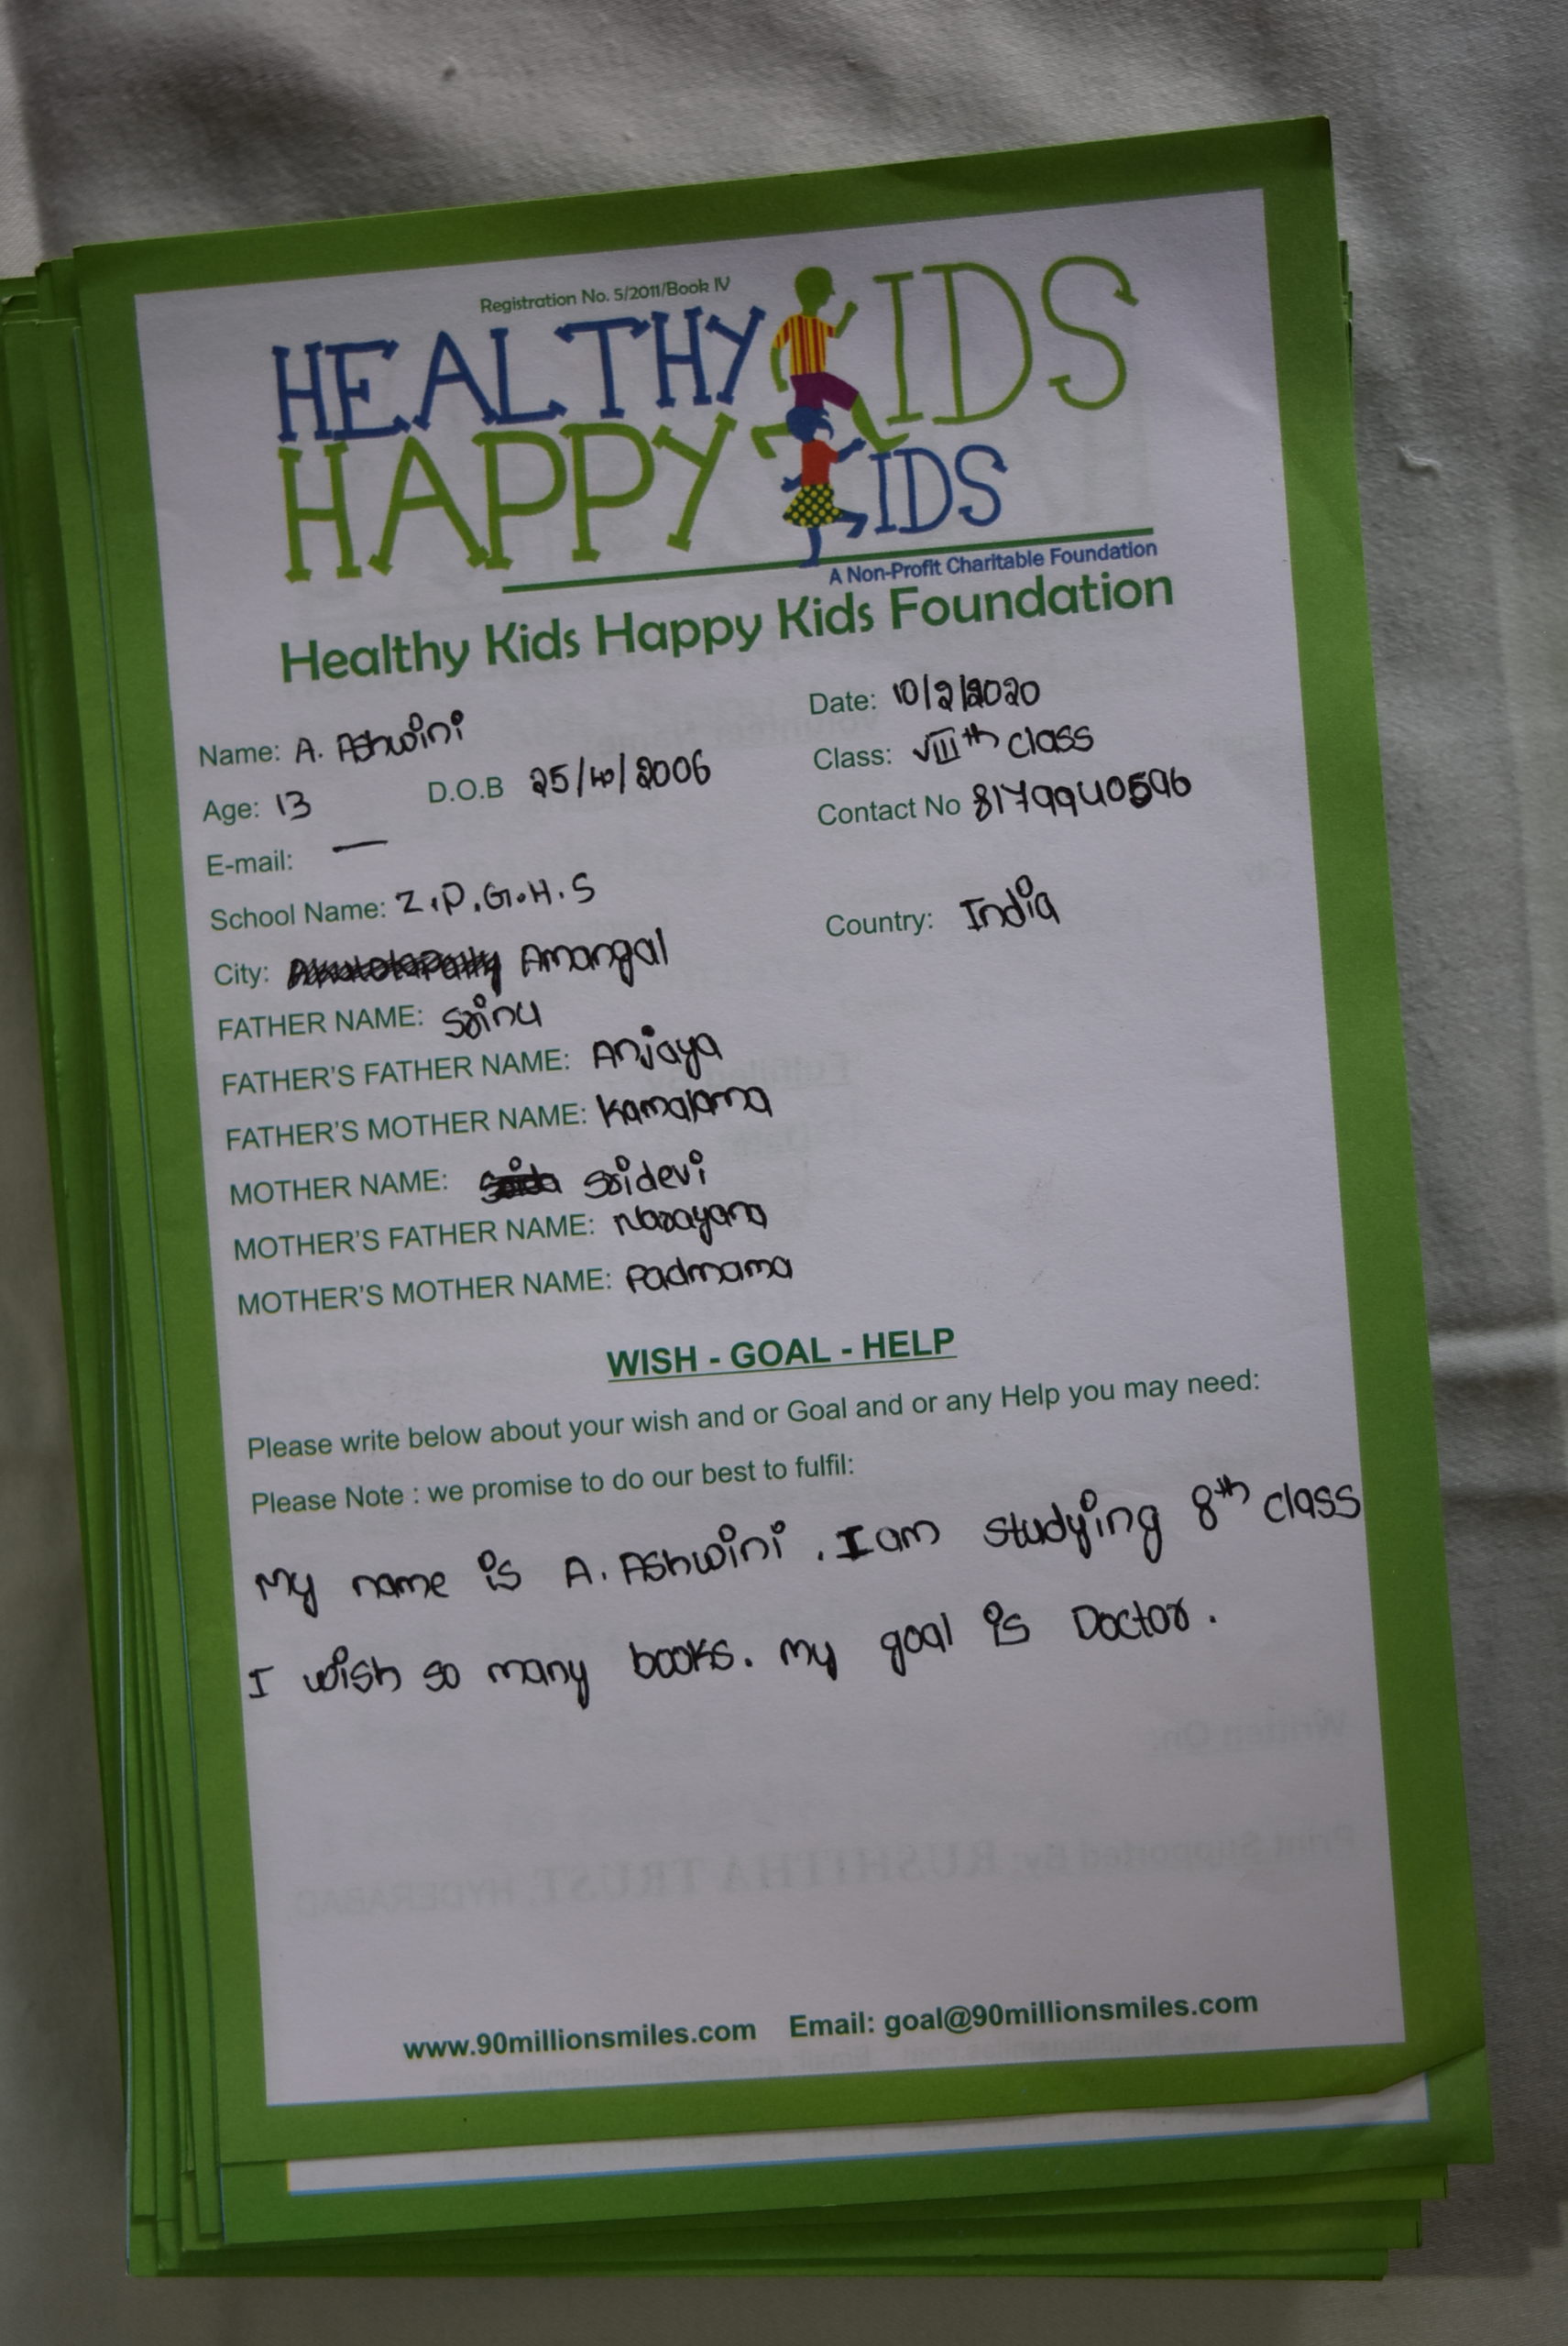 Registration No. 5/2011/Book IV
HEALTHY KIDS
HAPPY KIDS
A Non-Profit Charitable Foundation
Healthy Kids Happy Kids Foundation
Name: A. Ashwini
Date: 10/2/2020
Age: 13 D.O.B 25/10/2006
Class: VIIIth class
E-mail: —
Contact No 8179940596
School Name: Z.P.G.H.S
City: Amangal
Country: India
FATHER NAME: Srinu
FATHER'S FATHER NAME: Anjaya
FATHER'S MOTHER NAME: Kamalama
MOTHER NAME: Sridevi
MOTHER'S FATHER NAME: Narayana
MOTHER'S MOTHER NAME: Padmama
WISH - GOAL - HELP
Please write below about your wish and or Goal and or any Help you may need:
Please Note : we promise to do our best to fulfil:
My name is A. Ashwini . I am studying 8th class
I wish so many books. my goal is Doctor.
www.90millionsmiles.com Email: goal@90millionsmiles.com